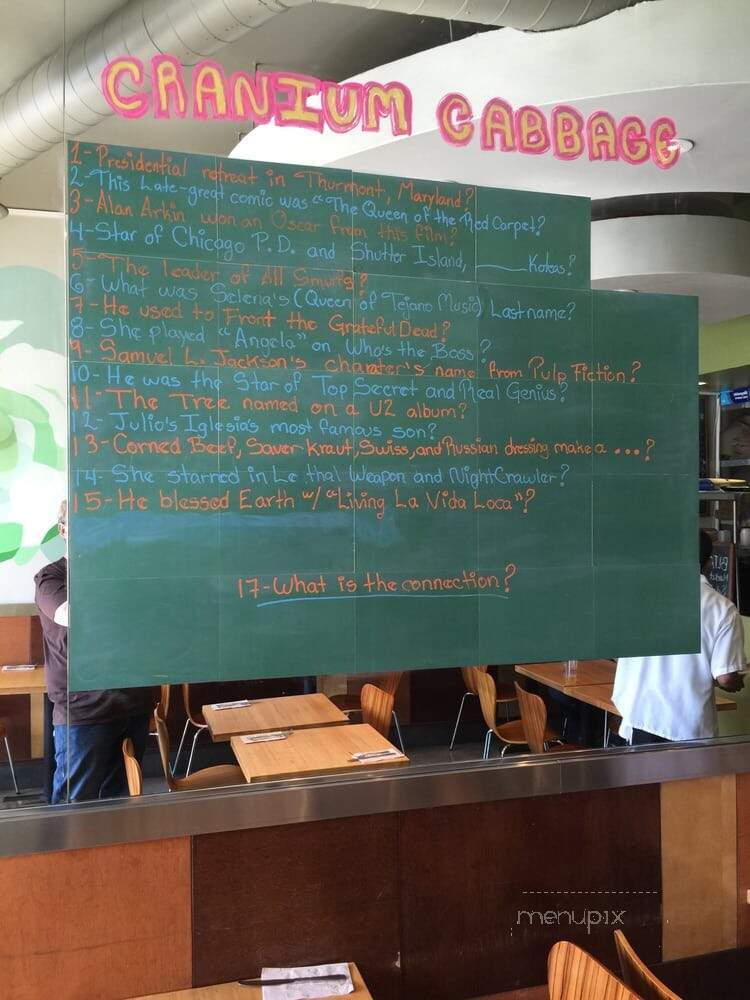 CRANIUM CABBAGE
1- Presidential retreat in Thurmont, Maryland?
2- This Late-great comic was "The Queen of the Red Carpet?
3- Alan Arkin won an Oscar from this film?
4- Star of Chicago P.D. and Shutter Island, ____ Koteas?
5- The leader of All Smurfs?
6- What was Selena's (Queen of Tejano Music) Last name?
7- He used to Front the Grateful Dead?
8- She played "Angela" on Who's the Boss?
9- Samuel L. Jackson's charater's name from Pulp Fiction?
10- He was the Star of Top Secret and Real Genius?
11- The Tree named on a U2 album?
12- Julio's Iglesia's most famous son?
13- Corned Beef, Saver kraut, Swiss, and Russian dressing make a ...?
14- She starred in Lethal Weapon and NightCrawler?
15- He blessed Earth w/ "Living La Vida Loca"?
17- What is the connection?
menupix